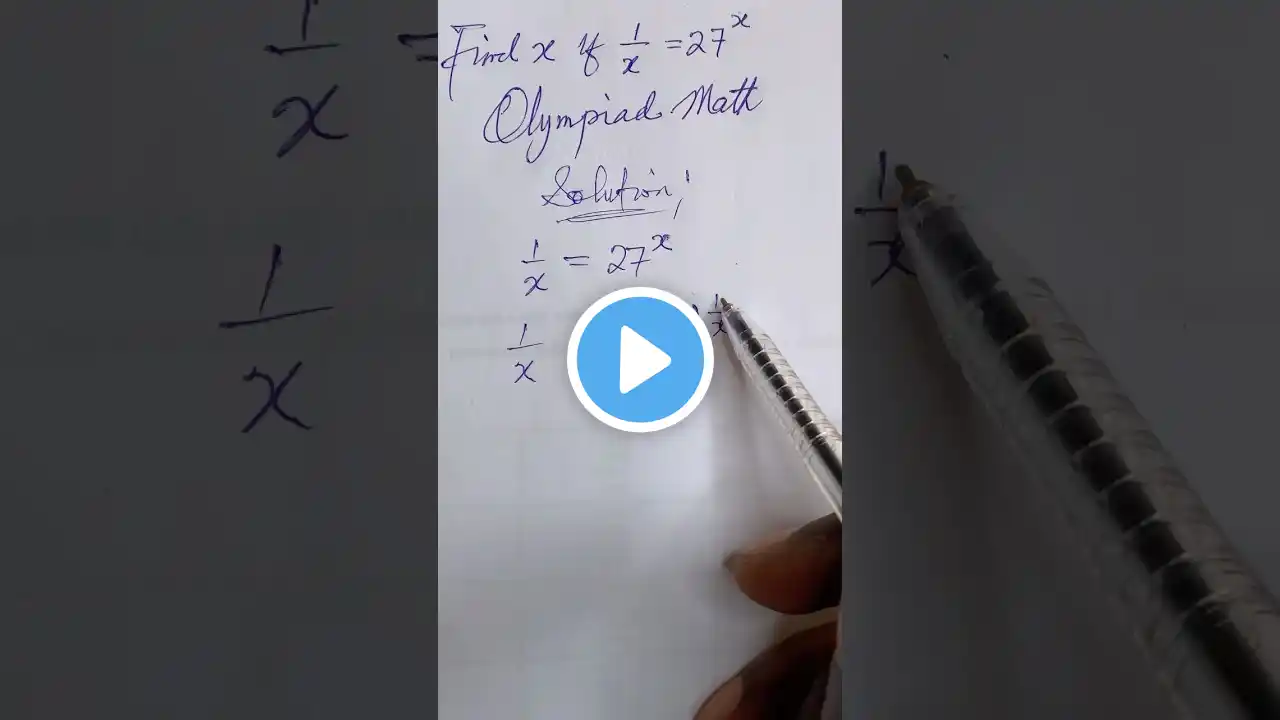 Find x if 1/x = 27^x
Olympiad Math
Solution;
1/x = 27^x
1/x 1/x